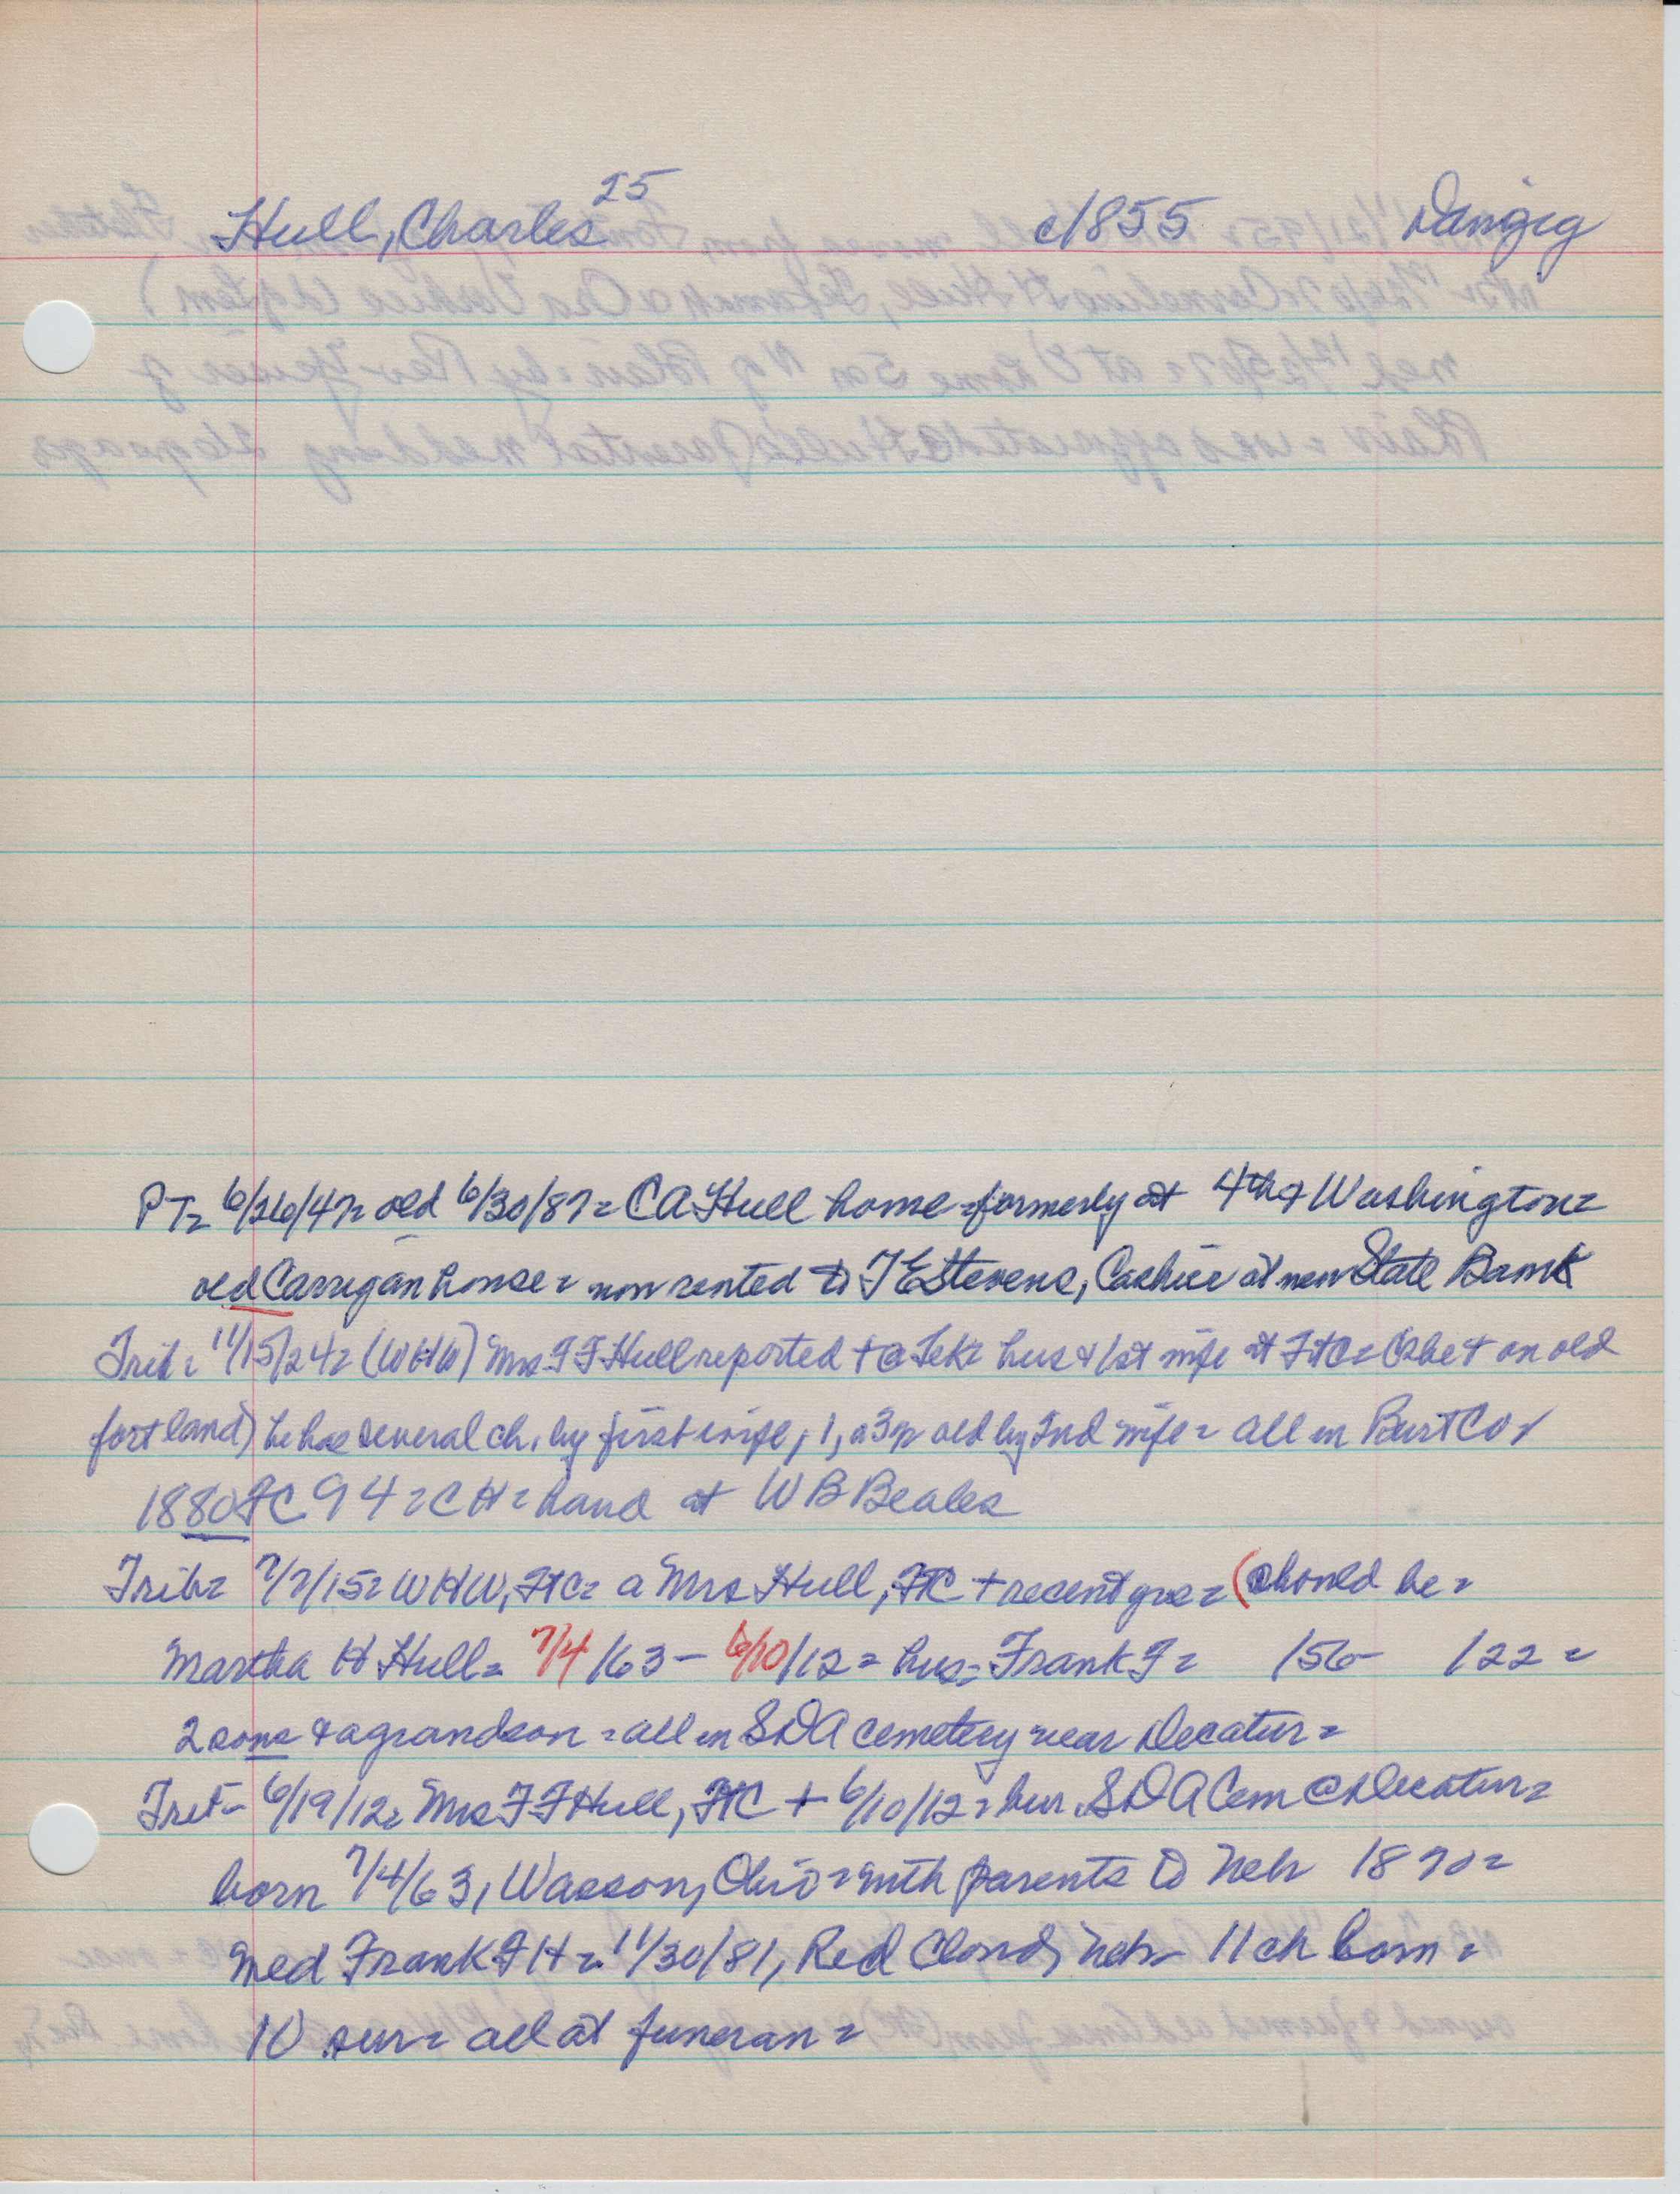 Hull, Charles 25 c1855 Danzig
PT= 6/26/47= old 6/30/87= CA Hull home = formerly at 4th & Washington=
old Carrigan house = now rented to T E Stevens, Cashier at new State Bank
Trib= 11/15/24= (WHW) Mrs F F Hull reported + @ Tek= hus & 1st wife at FtC= (she + on old
fort land) he has several ch. by first wife; 1, a 3 yr old by 2nd wife = all in Burt Co
1880 FC 94= CH= hand at W B Beales
Trib= 7/7/15= WHW, FtC= a Mrs Hull, FtC + recent yrs = (should be=
Martha H Hull= 7/4/63 - 6/10/12= hus= Frank F= 156- 122=
2 sons & a grandson = all in SDA cemetery near Decatur=
Trib- 6/19/12= Mrs F F Hull, FtC + 6/10/12= bur. SDA Cem @ Decatur=
born 7/4/63, Wasson, Ohio= with parents to Neb 1870=
med Frank F H= 11/30/81, Red Cloud, Neb- 11 ch born=
10 sur= all at funeran=